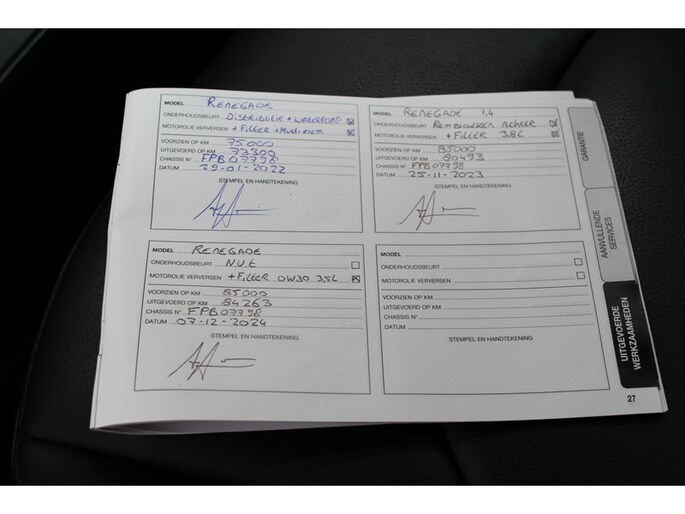 MODEL RENEGADE
ONDERHOUDSBEURT DISTRIBUTIE + WATERPOMP
MOTOROLIE VERVERSEN + FILTER + MULTIRIEM
VOORZIEN OP KM 75000
UITGEVOERD OP KM 73300
CHASSIS N° FPB07798
DATUM 29-01-2022
STEMPEL EN HANDTEKENING
MODEL RENEGADE 1.4
ONDERHOUDSBEURT REMBLOKKEN ACHTER
MOTOROLIE VERVERSEN + FILTER 3.8L
VOORZIEN OP KM 85000
UITGEVOERD OP KM 80493
CHASSIS N° FPB07798
DATUM 25-11-2023
STEMPEL EN HANDTEKENING
MODEL RENEGADE
ONDERHOUDSBEURT N.V.t
MOTOROLIE VERVERSEN + FILTER 0W30 3,5L
VOORZIEN OP KM 85000
UITGEVOERD OP KM 84263
CHASSIS N° FPB07798
DATUM 07-12-2024
STEMPEL EN HANDTEKENING
MODEL
ONDERHOUDSBEURT
MOTOROLIE VERVERSEN
VOORZIEN OP KM
UITGEVOERD OP KM
CHASSIS N°
DATUM
STEMPEL EN HANDTEKENING
GARANTIE
AANVULLENDE
SERVICES
UITGEVOERDE
WERKZAAMHEDEN
27